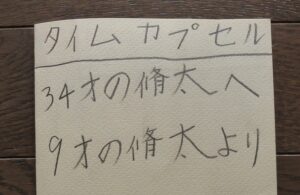 タイムカプセル
34才の脩太へ
9才の脩太より